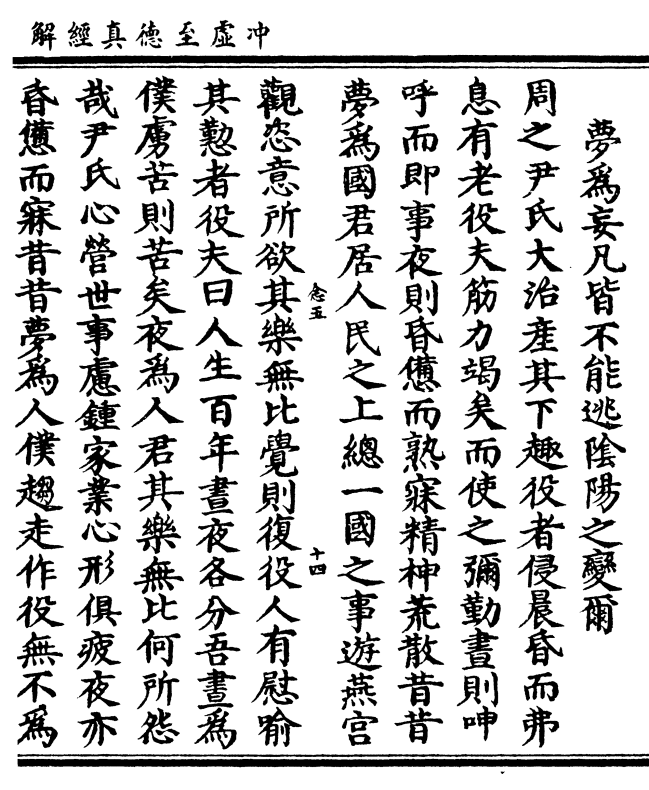 冲虛至德真經解
夢爲妄凡皆不能逃陰陽之變爾
周之尹氏大治產其下趣役者侵晨昏而弗
息有老役夫筋力竭矣而使之彌勤晝則呻
呼而即事夜則昏憊而熟寐精神荒散昔昔
夢爲國君居人民之上總一國之事遊燕宫
觀恣意所欲其樂無比覺則復役人有慰喻
念五
十四
其懃者役夫曰人生百年晝夜各分吾晝爲
僕虜苦則苦矣夜爲人君其樂無比何所怨
哉尹氏心營世事慮鍾家業心形俱疲夜亦
昏憊而寐昔昔夢爲人僕趨走作役無不爲